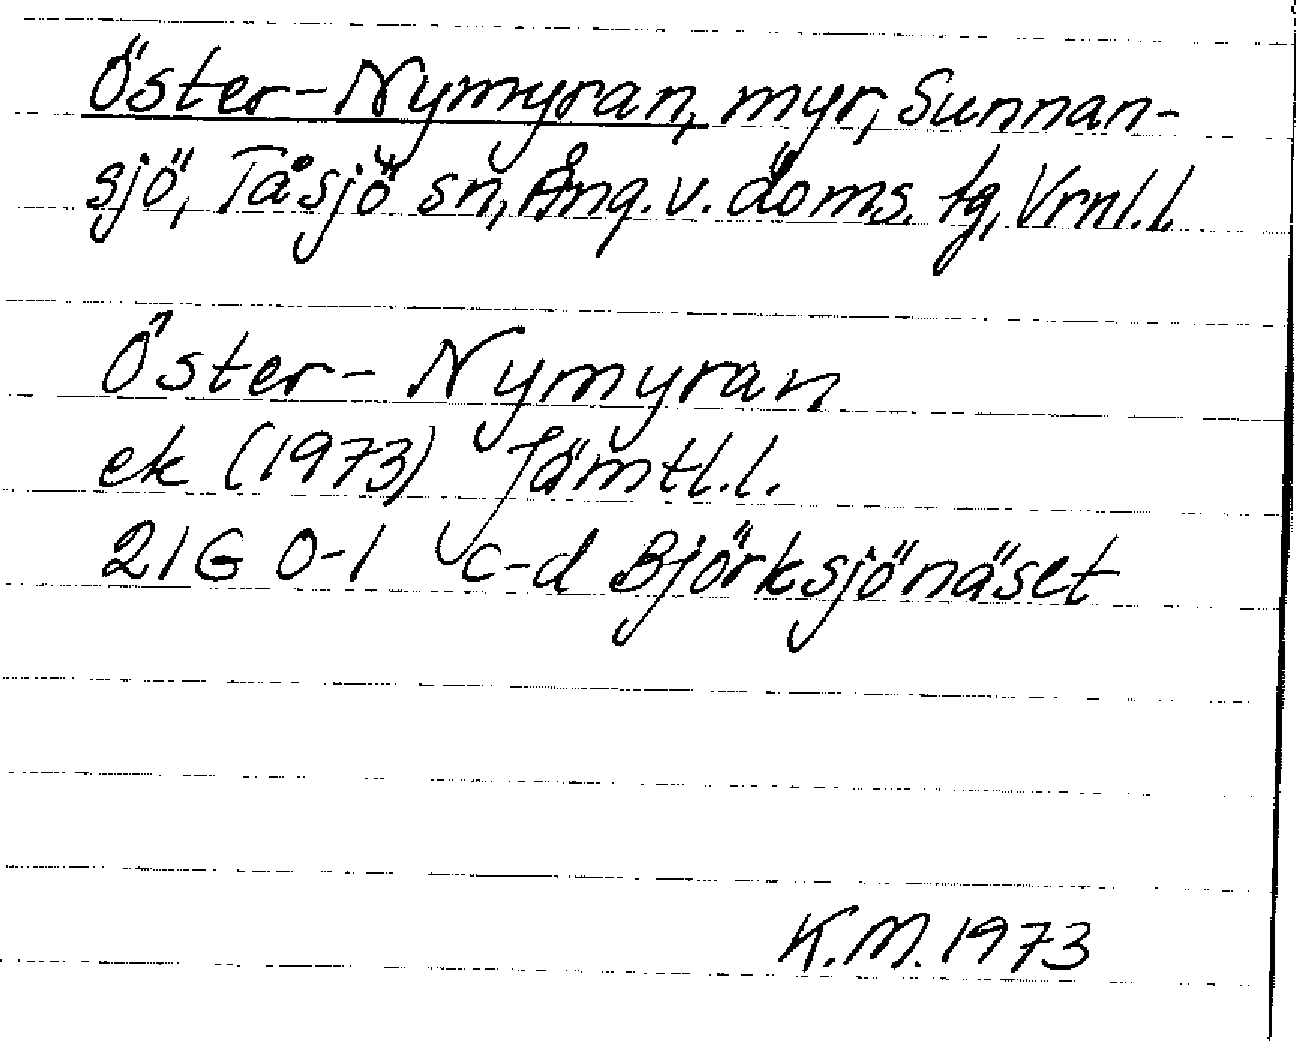 Öster-Nymyran, myr, Sunnan-
sjö, Tåsjö sn, Ång. v. doms. tg, Vrnl.l.
Öster-Nymyran
ek (1973) Jämtl.l.
21G 0-1 c-d Björksjönäset
K.M. 1973